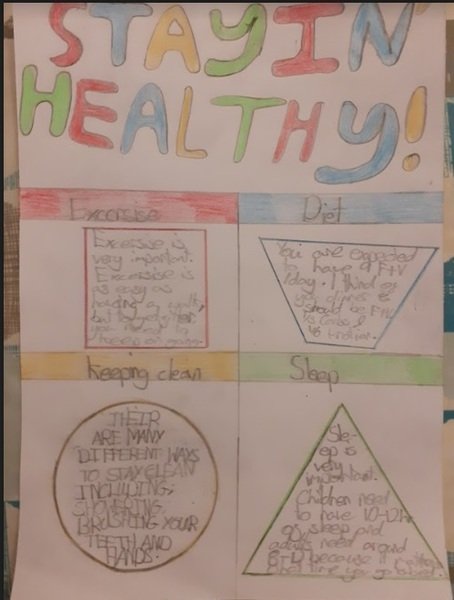 STAYIN'
HEALTHY!
Excersise
Diet
Excersise is
very important.
Excersise is
as easy as
having a walk,
but
you need to
keep on going.
You are expected
to have 7 F+V
1day. 1 third of
your dinner
should be F+V
1/3 Carbs &
1/3
Keeping clean
Sleep
THEIR
ARE MANY
DIFFERENT WAYS
TO STAY CLEAN
INCLUDING;
SHOWERING,
BRUSHING YOUR
TEETH AND
HANDS.
Sle-
ep is
very
important.
Children need
to have 10-12h
of sleep and
adults need around
because it
what time you go to bed.